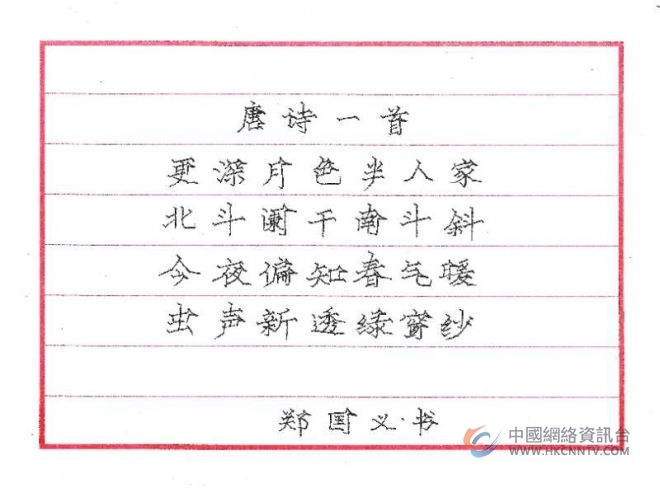 唐诗一首
更深月色半人家
北斗阑干南斗斜
今夜偏知春气暖
虫声新透绿窗纱
郑国义·书
中國網絡資訊台
WWW.HKCNNTV.COM